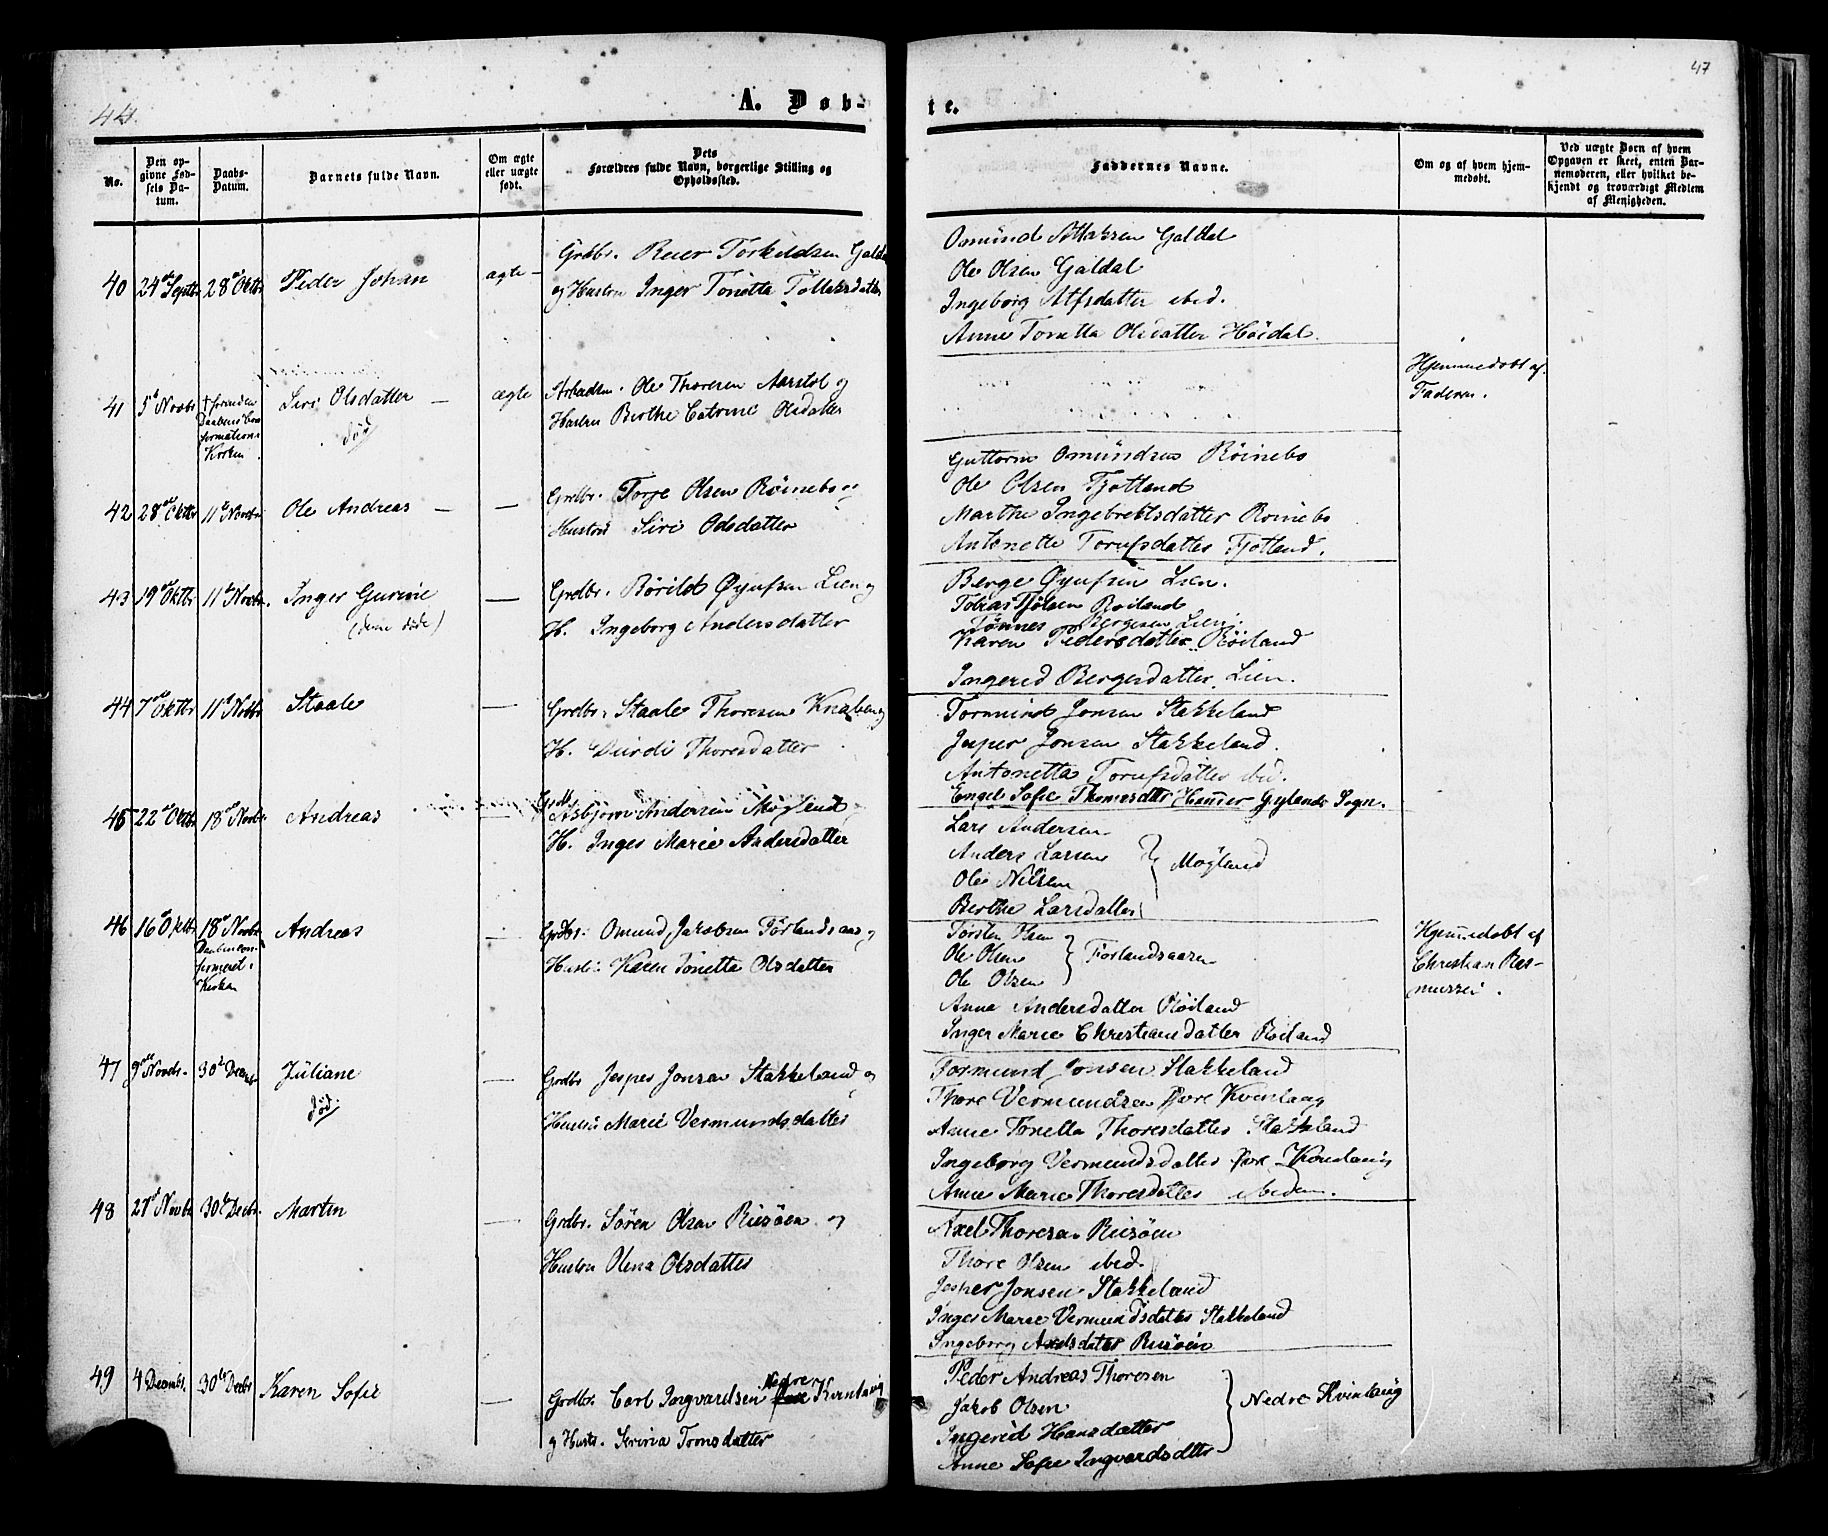 44.
A. Døb-
te.
47
No.
Den op-
givne Fød-
sels Da-
tum.
Daabs-
Datum.
Barnets fulde Navn.
Om ægte
eller uægte
født.
Dets
Forældres fulde Navn, borgerlige Stilling og
Opholdssted.
Faddernes Navne.
Om og af hvem hjem-
medøbt.
Ved uægte Børn af hvem
Opgaven er skeet, enten Bar-
nemoderen, eller hvilket be-
kjendt og troværdigt Medlem
af Menigheden.
40 24de Septbr 28de Oktbr Peder Johan ægte -
Grdbr. Reier Torkildsen Galdal
og Hustru Inger Tonetta Tollaksdatter
Osmund Aslaksen Galdal
Ole Olsen Galdal
Ingeborg Atlsdatter ibid.
Anne Tonetta Olsdatter Høidal.
41 5te Novbr † forinden
Daabens Con-
firmation i
Kirken
Siri Olsdatter -
død
ægte
Arbeidsm. Ole Thoresen Aarstøl og
Hustru Berthe Catrine Olsdatter
Hjemmedøbt af
Faderen.
42 28de Oktbr 11te Novbr Ole Andreas - —
Grdbr. Torje Olsen Røinebo og
Hustru Siri Odsdatter
Guttorm Omundsen Røinebo
Ole Olsen Fjotland
Marthe Ingebretsdatter Roinebo
Antonette Torufsdatter Fjotland.
43 19de Oktbr 11te Novbr. Inger Gurine
(denne døde)
—
Grdbr. Børild Øyufsen Lien og
H. Ingeborg Andersdatter
Berge Øyufsen Lien.
Tobias Fjølsen Røiland
Tønnes Bergesen Lien.
Karen Pedersdatter Røiland
Ingerid Bergesdatter Lien.
44 7de Oktbr 11te Novbr Staale —
Grdbr. Staale Thoresen Knaben og
H. Duirdi Thoresdatter
Tormund Jonsen Stakkeland
Jesper Jonsen Stakkeland.
Antonetta Torufsdatter ibid.
Engel Sofie Thomesdtr Hammer Gylands Sogn.
45 22de Oktbr 18de Novbr Andreas —
Grdbr.
Asbjørn Andersen Møgland
H. Inger Marie Andersdatter
Lars Andersen
Anders Larsen
Ole Nilsen
Berthe Larsdatter
Møgland
46 16 Oktbr 18de Novbr
Daaben con-
firmeret i
Kirken
Andreas
—
Grdbr. Omund Jakobsen Førlandsaas og
Hustru Karen Tonetta Olsdatter
Torsten Olsen
Ole Olsen
Ole Olsen
Førlandsaasen
Anna Andersdatter Røiland
Inger Marie Christiansdatter Røiland
Hjemmedøbt af
Christian Ras-
mussen.
47 9de Novbr. 30te Decembr Juliane
død.
—
Grdbr Jesper Jonsen Stakkeland og
Hustru Marie Vermundsdatter
Tormund Jonsen Stakkeland
Thore Vermundsen Øvre Kvinlaug
Anne Tonetta Thoresdatter Stakkeland
Ingeborg Vermundsdatter Øvre Kvinlaug
Anne Marie Thoresdatter ibidem.
48 27de Novbr 30te Decbr. Martin —
Grdbr. Søren Olsen Risøen og
Hustru Olena Olsdatter
Axel Thoresen Risøen
Thore Olsen ibid.
Jesper Jonsen Stakkeland
Inger Marie Vermundsdatter Stakkeland
Ingeborg Axelsdatter Risøen
49 4 Decembr. 30te Decbr Karen Sofie —
Grdbr. Carl Ingvardtsen Nedre Kvinlaug
og Hustr. Serina Tomsdatter
Peder Andreas Thoresen
Jakob Olsen
Ingerid Hansdatter
Anne Sofie Ingvardsdtr
Nedre Kvinlaug